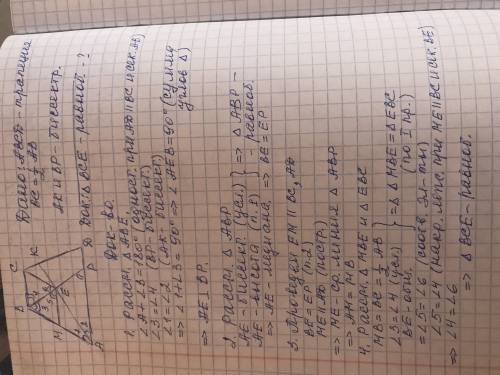 Дано: ABCD - трапеция
BC = 1/2 AB
AK и BP - биссектр.
Док: Δ BCE - равноб. - ?
B C
M K
E
A P D
Док-во.
1. Рассм. Δ ABE.
∠A + ∠B = 180° (одност. при AD || BC и сек. AB)
∠3 = ∠4 (BP - биссект.)
∠1 = ∠2 (AK - биссект.)
=> ∠1 + ∠3 = 90° => ∠AEB = 90° (сумма углов Δ)
=> AE ⊥ BP.
2. Рассм. Δ ABP
AE - биссект. (усл.) } => Δ ABP -
AE - высота (п. 1) - равноб.
=> AE - медиана. => BE = EP
3. Проведем EM || BC, AD
BE = EP (п.2)
ME || AD (постр.)
=> ME ср. линия Δ ABP
=> AM = MB
4. Рассм. Δ MBE и Δ EBC
MB = BC = 1/2 AB
∠3 = ∠4 (усл) } => Δ MBE = Δ EBC
BE - общ. (по I пр.)
=> ∠5 = ∠6 (соотв. эл-ты)
∠5 = ∠4 (накр. леж. при ME || BC и сек. BE)
=> ∠4 = ∠6 => Δ BCE - равноб.